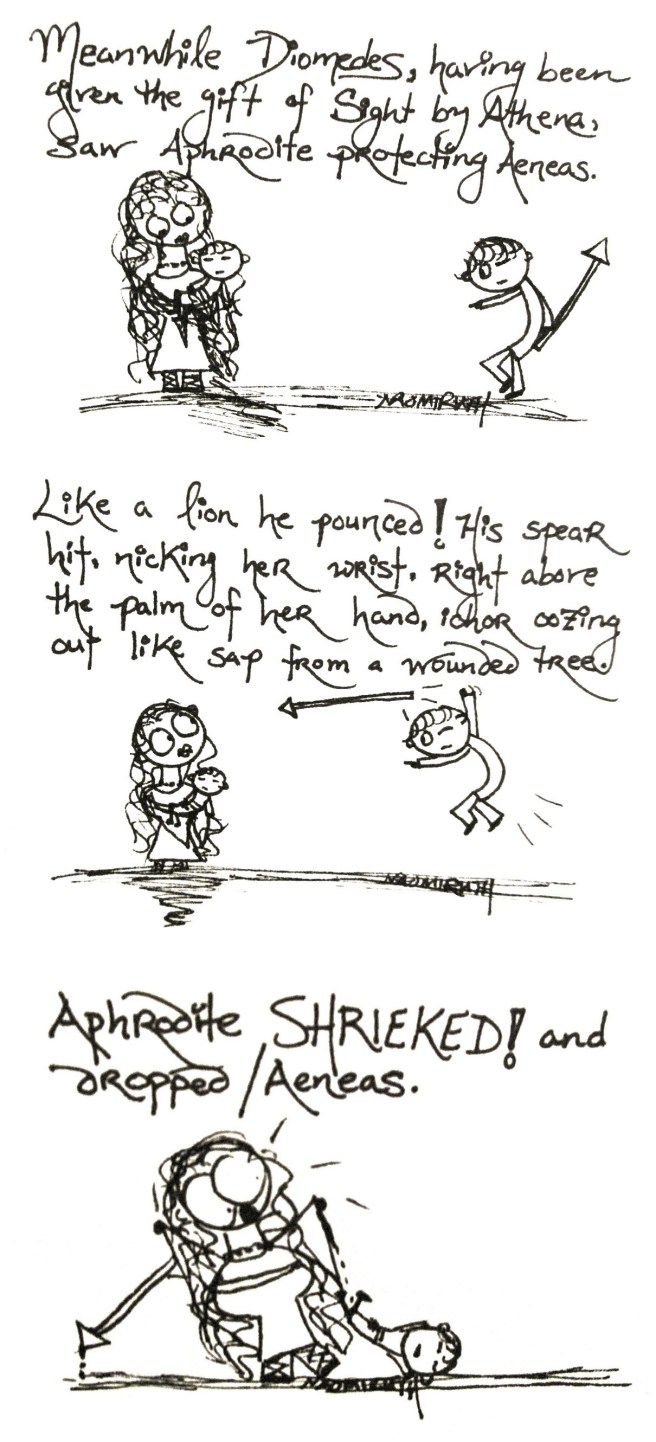 Meanwhile Diomedes, having been
given the gift of Sight by Athena,
saw Aphrodite protecting Aeneas.
NAOMIRUTH
Like a lion he pounced! His spear
hit, nicking her wrist. Right above
the palm of her hand, ichor oozing
out like sap from a wounded tree.
NAOMIRUTH
Aphrodite SHRIEKED! and
dropped Aeneas.
NAOMIRUTH